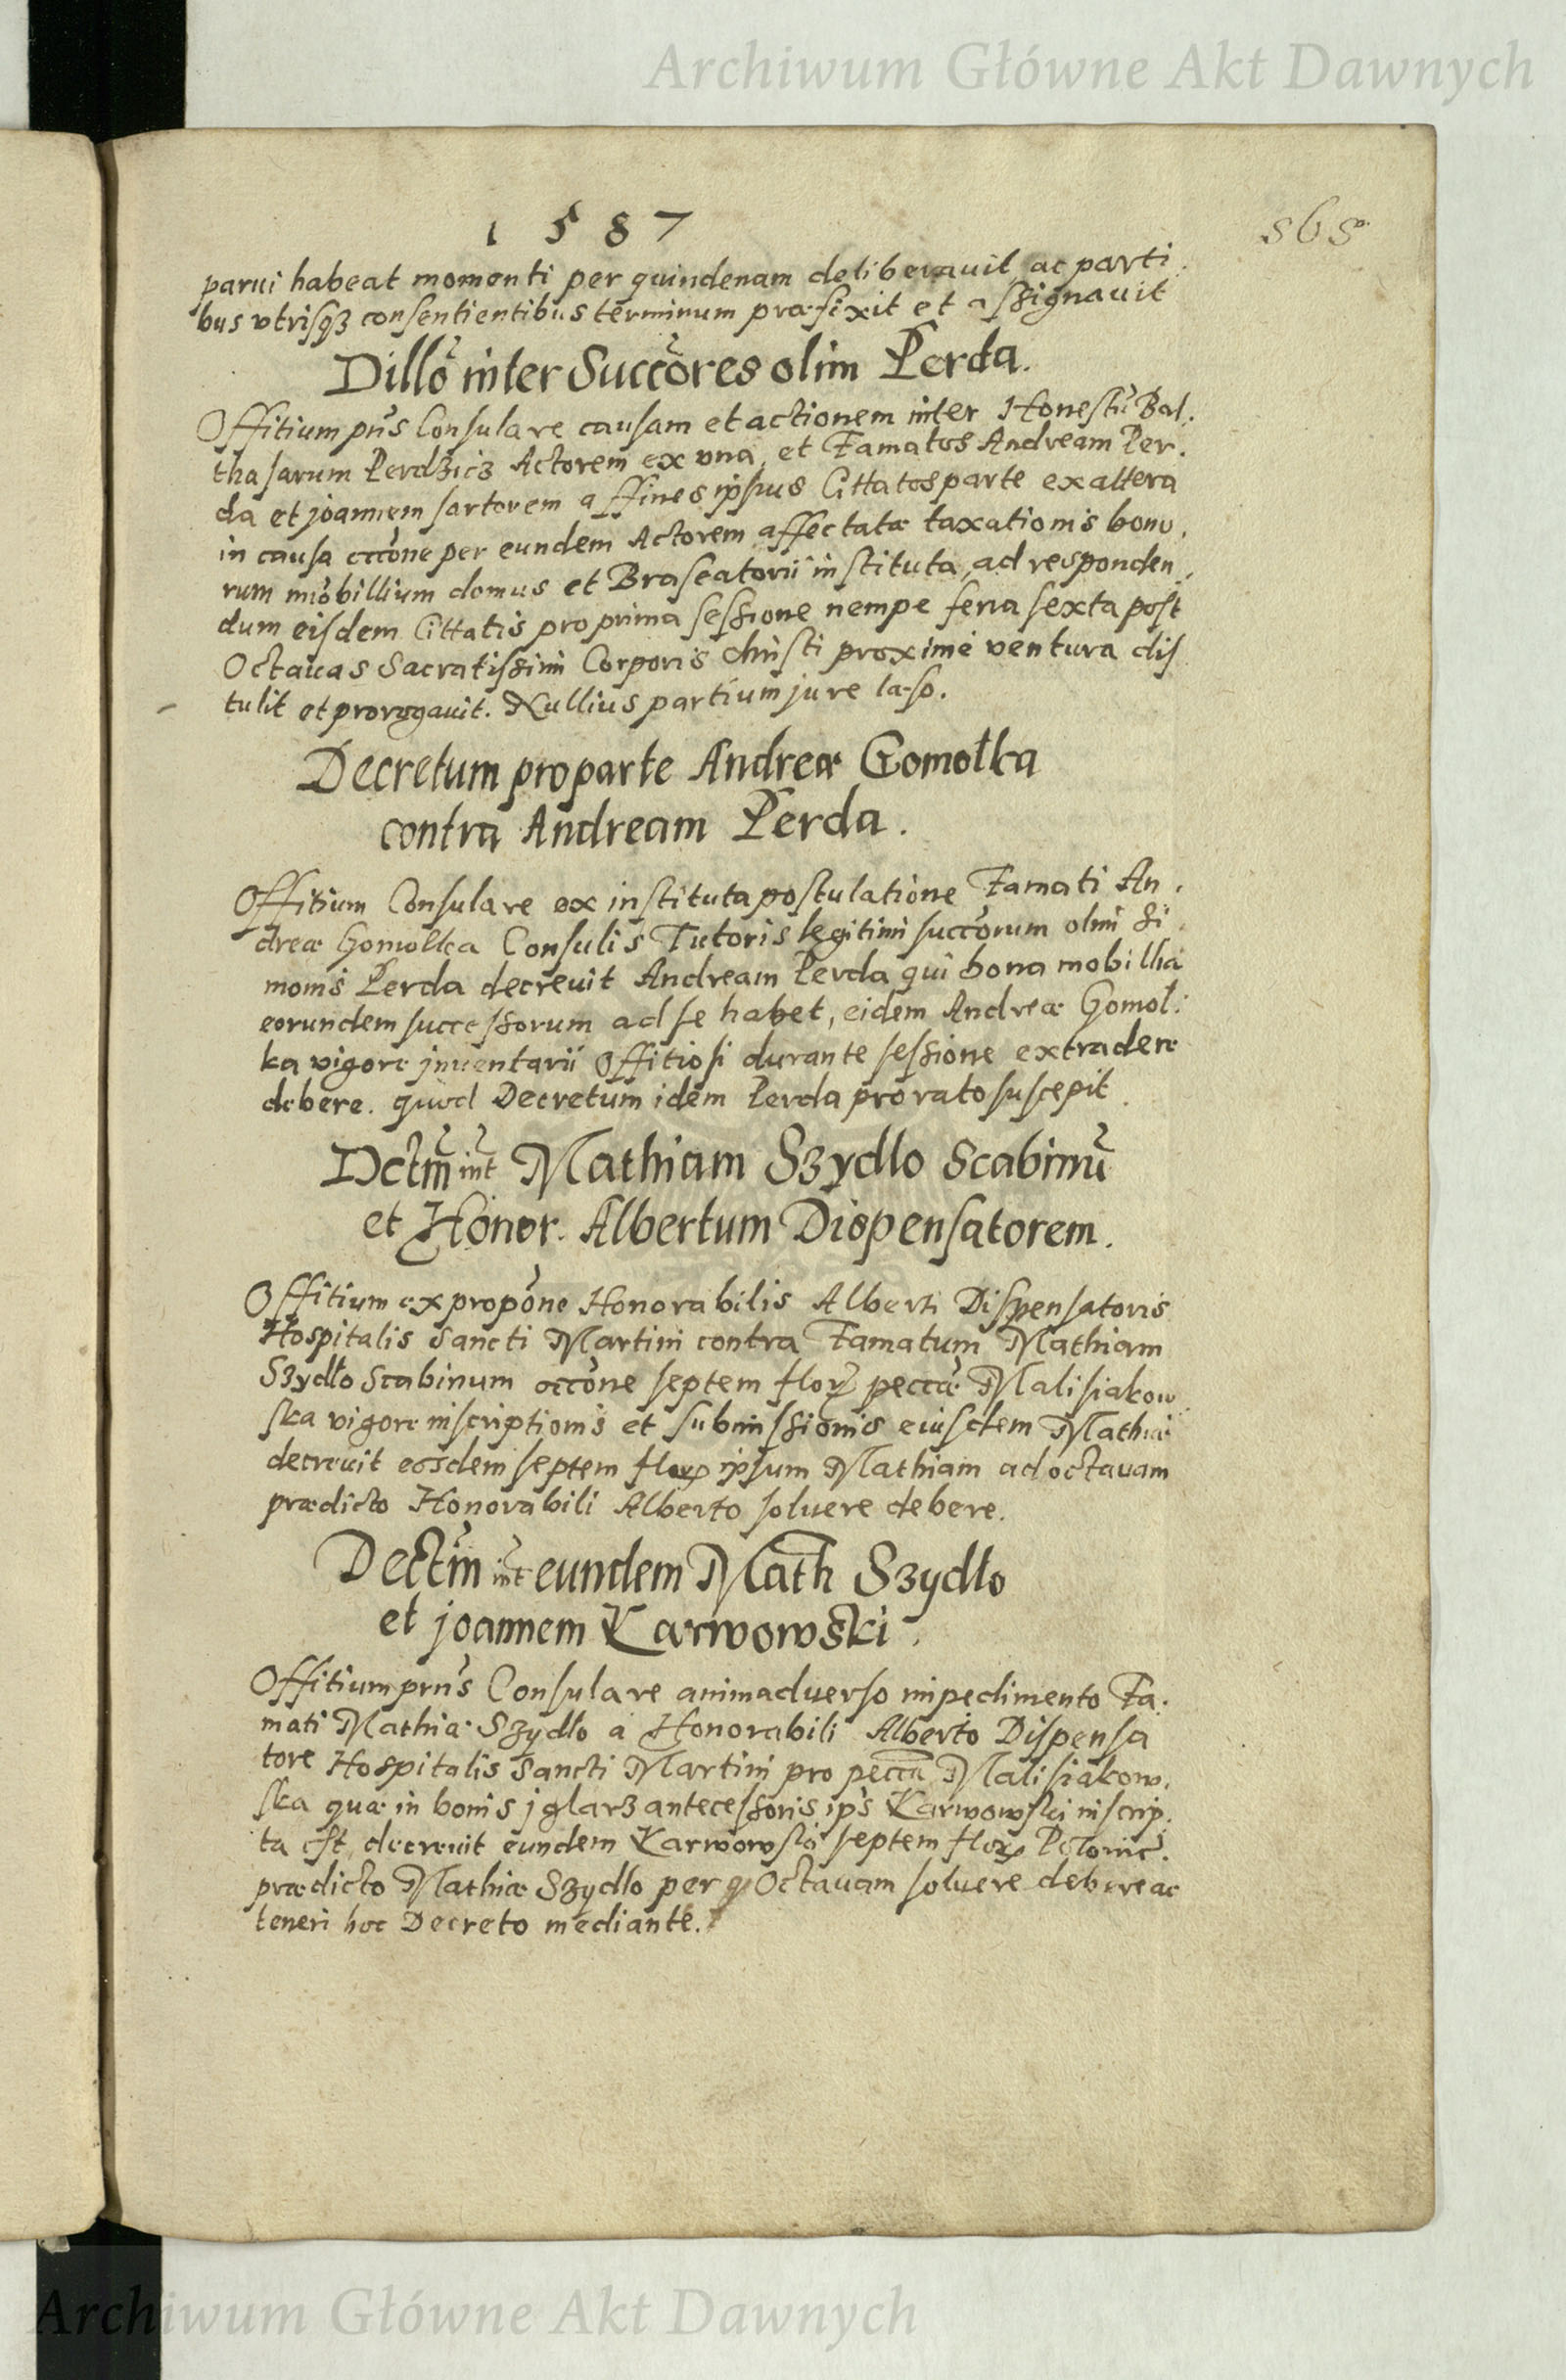 Archiwum Główne Akt Dawnych
1587
565
parui habeat momenti per quindenam deliberauit ac parti
bus vtrisqȝ consentientibus terminum præfixit et assignauit
Dillõ inter Succõres olim Perda.
Offitium pñs Consulare causam et actionem inter Honestũ Bal.
thasarum Perdzicz Actorem ex vna, et Famatos Andream Per.
da et joannem sartorem affines ipsius Cittatos parte ex altera
in causa occõne per eundem Actorem affectatæ taxationis bono.
rum mobillium domus et Braseatorii instituta, ad responden.
dum eisdem Cittatis pro prima sessione nempe feria sexta post
Octauas Sacratissimi Corporis Christi proxime ventura dis
tulit et prorogauit. Nullius partium jure læso.
Decretum pro parte Andreæ Gomolka
contra Andream Perda.
Offitium Consulare ex instituta postulatione Famati An.
dreæ Gomolka Consulis Tutoris legitimi succõrum olim Si.
monis Perda decreuit Andream Perda qui bona mobillia
eorundem successorum ad se habet, eidem Andreæ Gomol:
ka vigore jnuentarii offitiosi durante sessione extradere
debere. quod Decretum idem Perda pro rato suscepit.
Dctm̃ int̃ Mathiam Szydlo Scabinũ
et Honor. Albertum Dispensatorem.
Offitium ex propõne Honorabilis Alberti Dispensatoris
Hospitalis Sancti Martini contra Famatum Mathiam
Szydło Scabinum occõne septem floꝝ peccũæ Malisiakow
ska vigore inscriptionis et submissionis eiusdem Mathiæ
decreuit eosdem septem floꝝ ipsum Mathiam ad octauam
prædicto Honorabili Alberto soluere debere.
Dectm̃ int̃ eundem Math Szydlo
et joannem Karwowski.
Offitium prñs Consulare animaduerso impedimento Fa.
mati Mathiæ Szydlo a Honorabili Alberto Dispensa
tore Hospitalis Sancti Martini pro peccũa Malisiakow.
ska quæ in bonis jglarz antecessoris ip̃s Karwowski inscrip.
ta est, decreuit eundem Karwowski septem floꝝ Polonic.
prædicto Mathiæ Szydlo per Octauam soluere debere ac
teneri hoc Decreto mediante.
Archiwum Główne Akt Dawnych